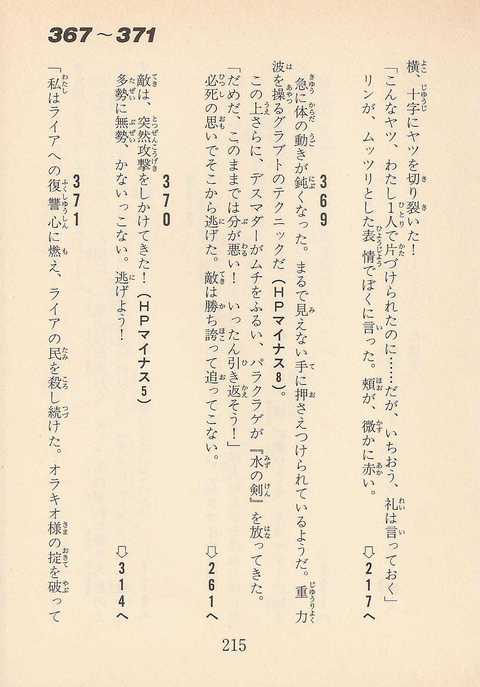 367～371
横、十字にヤツを切り裂いた！
「こんなヤツ、わたし1人で片づけられたのに……だが、いちおう、礼は言っておく」
リンが、ムッツリとした表情でぼくに言った。頬が、微かに赤い。
⇨217へ
369
急に体の動きが鈍くなった。まるで見えない手に押さえつけられているようだ。重力
波を操るグラブトのテクニックだ（HPマイナス8）。
この上さらに、デスマダーがムチをふるい、パラクラゲが『水の剣』を放ってきた。
「だめだ、このままでは分が悪い！　いったん引き返そう！」
必死の思いでそこから逃げた。敵は勝ち誇って追ってこない。
⇨261へ
370
敵は、突然攻撃をしかけてきた！（HPマイナス5）
多勢に無勢、かないっこない。逃げよう！
⇨314へ
371
「私はライアへの復讐心に燃え、ライアの民を殺し続けた。オラキオ様の掟を破って
215